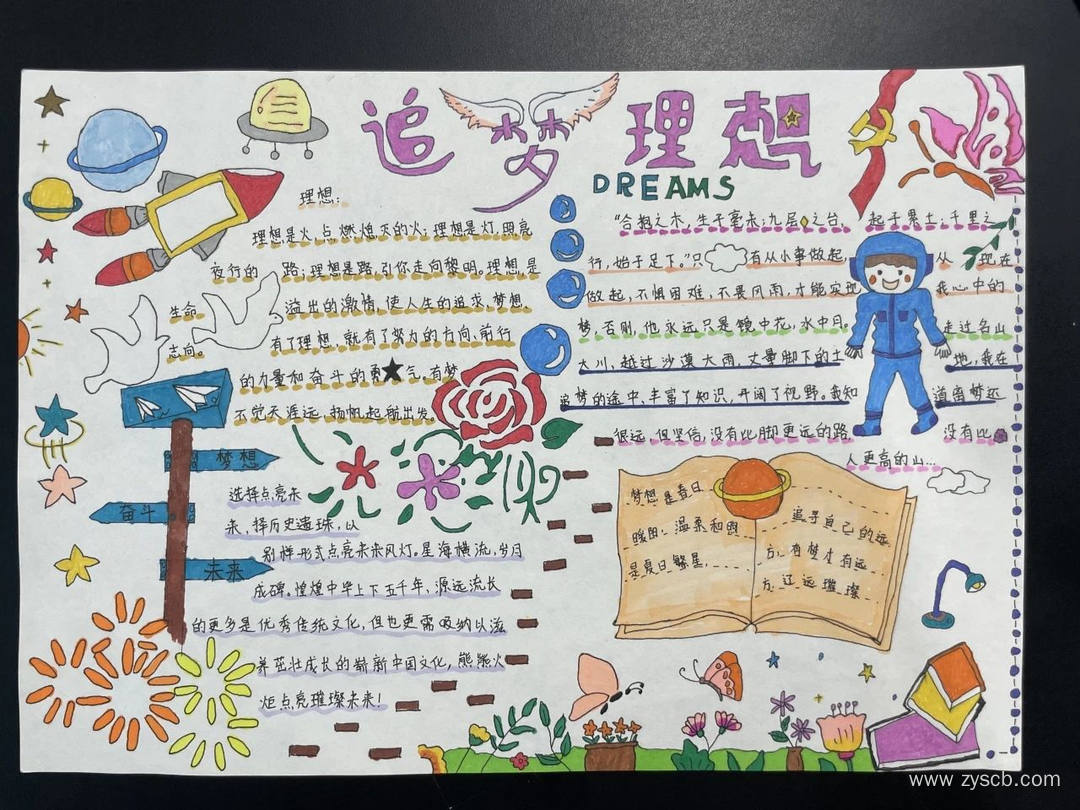 追梦理想
DREAMS
理想：
理想是火,点燃熄灭的火；理想是灯,照亮
夜行的路；理想是路,引你走向黎明。理想,是
生命溢出的激情,使人生的追求,梦想
志向。有了理想,就有了努力的方向,前行
的力量和奋斗的勇气,有梦
不觉天涯远,扬帆起航出发
梦想
奋斗
未来
选择点亮未
来,择历史遗珠,以
别样形式点亮未来风灯。星海横流,岁月
成碑。煌煌中华上下五千年,源远流长
的更多是优秀传统文化,但也更需吸纳以滋
养茁壮成长的崭新中国文化,熊熊火
炬点亮璀璨未来！
“合抱之木,生于毫末；九层之台,起于累土；千里之
行,始于足下。”只有从小事做起,从现在
做起,不惧困难,不畏风雨,才能实现我心中的
梦,否则,他永远只是镜中花,水中月。走过名山
大川,越过沙漠大雨,丈量脚下的土地,我在
追梦的途中,丰富了知识,开阔了视野。我知道离梦还
很远,但坚信,没有比脚更远的路没有比
人更高的山...
梦想是春日
暖阳：温柔和煦
是夏日繁星,
追寻自己的远
方,有梦才有远
方,辽远璀璨
www.zyscb.com